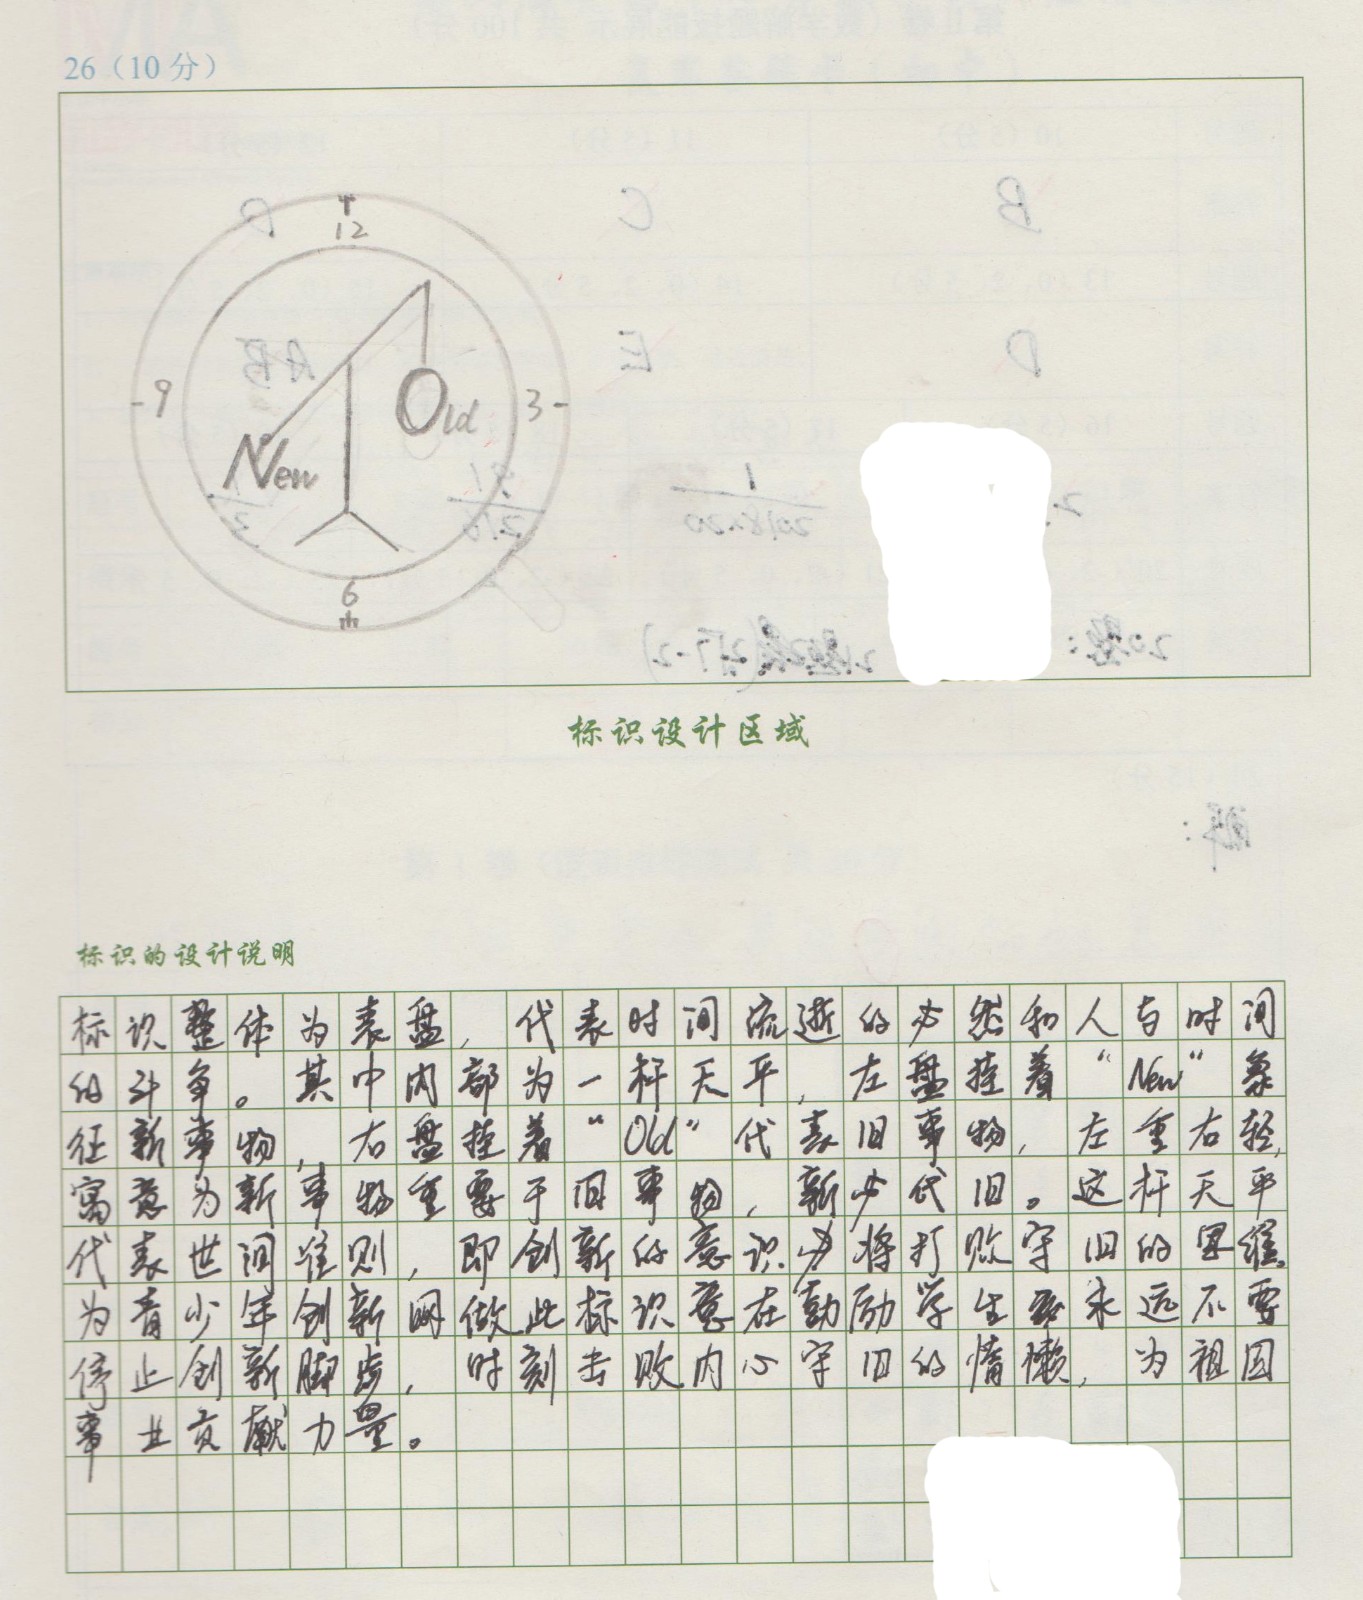 26（10分）
12
9
3
Old
New
6
标识设计区域
标识的设计说明
标识整体为表盘，代表时间流逝的必然和人与时间
的斗争。其中内部为一杆天平，左盘挂着“New”象
征新事物，右盘挂着“Old”代表旧事物，左重右轻，
寓意为新事物重要于旧事物，新必代旧。这杆天平
代表世间准则，即创新的意识必将打败守旧的思维。
为青少年创新网做此标识意在勉励学生永远不要
停止创新脚步，时刻击败内心守旧的惰懒，为祖国
事业贡献力量。